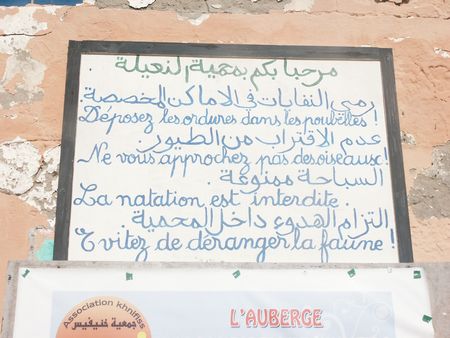 مرحبا بكم بمحمية النعيلة
رمي النفايات في الاماكن المخصصة.
Déposez les ordures dans les poubelles !
عدم الاقتراب من الطيور
Ne vous approchez pas des oiseaux !
السباحة ممنوعة.
La natation est interdite.
التزام الهدوء داخل المحمية
Evitez de déranger la faune !
Association khnifiss
جمعية خنيفيس
L'AUBERGE